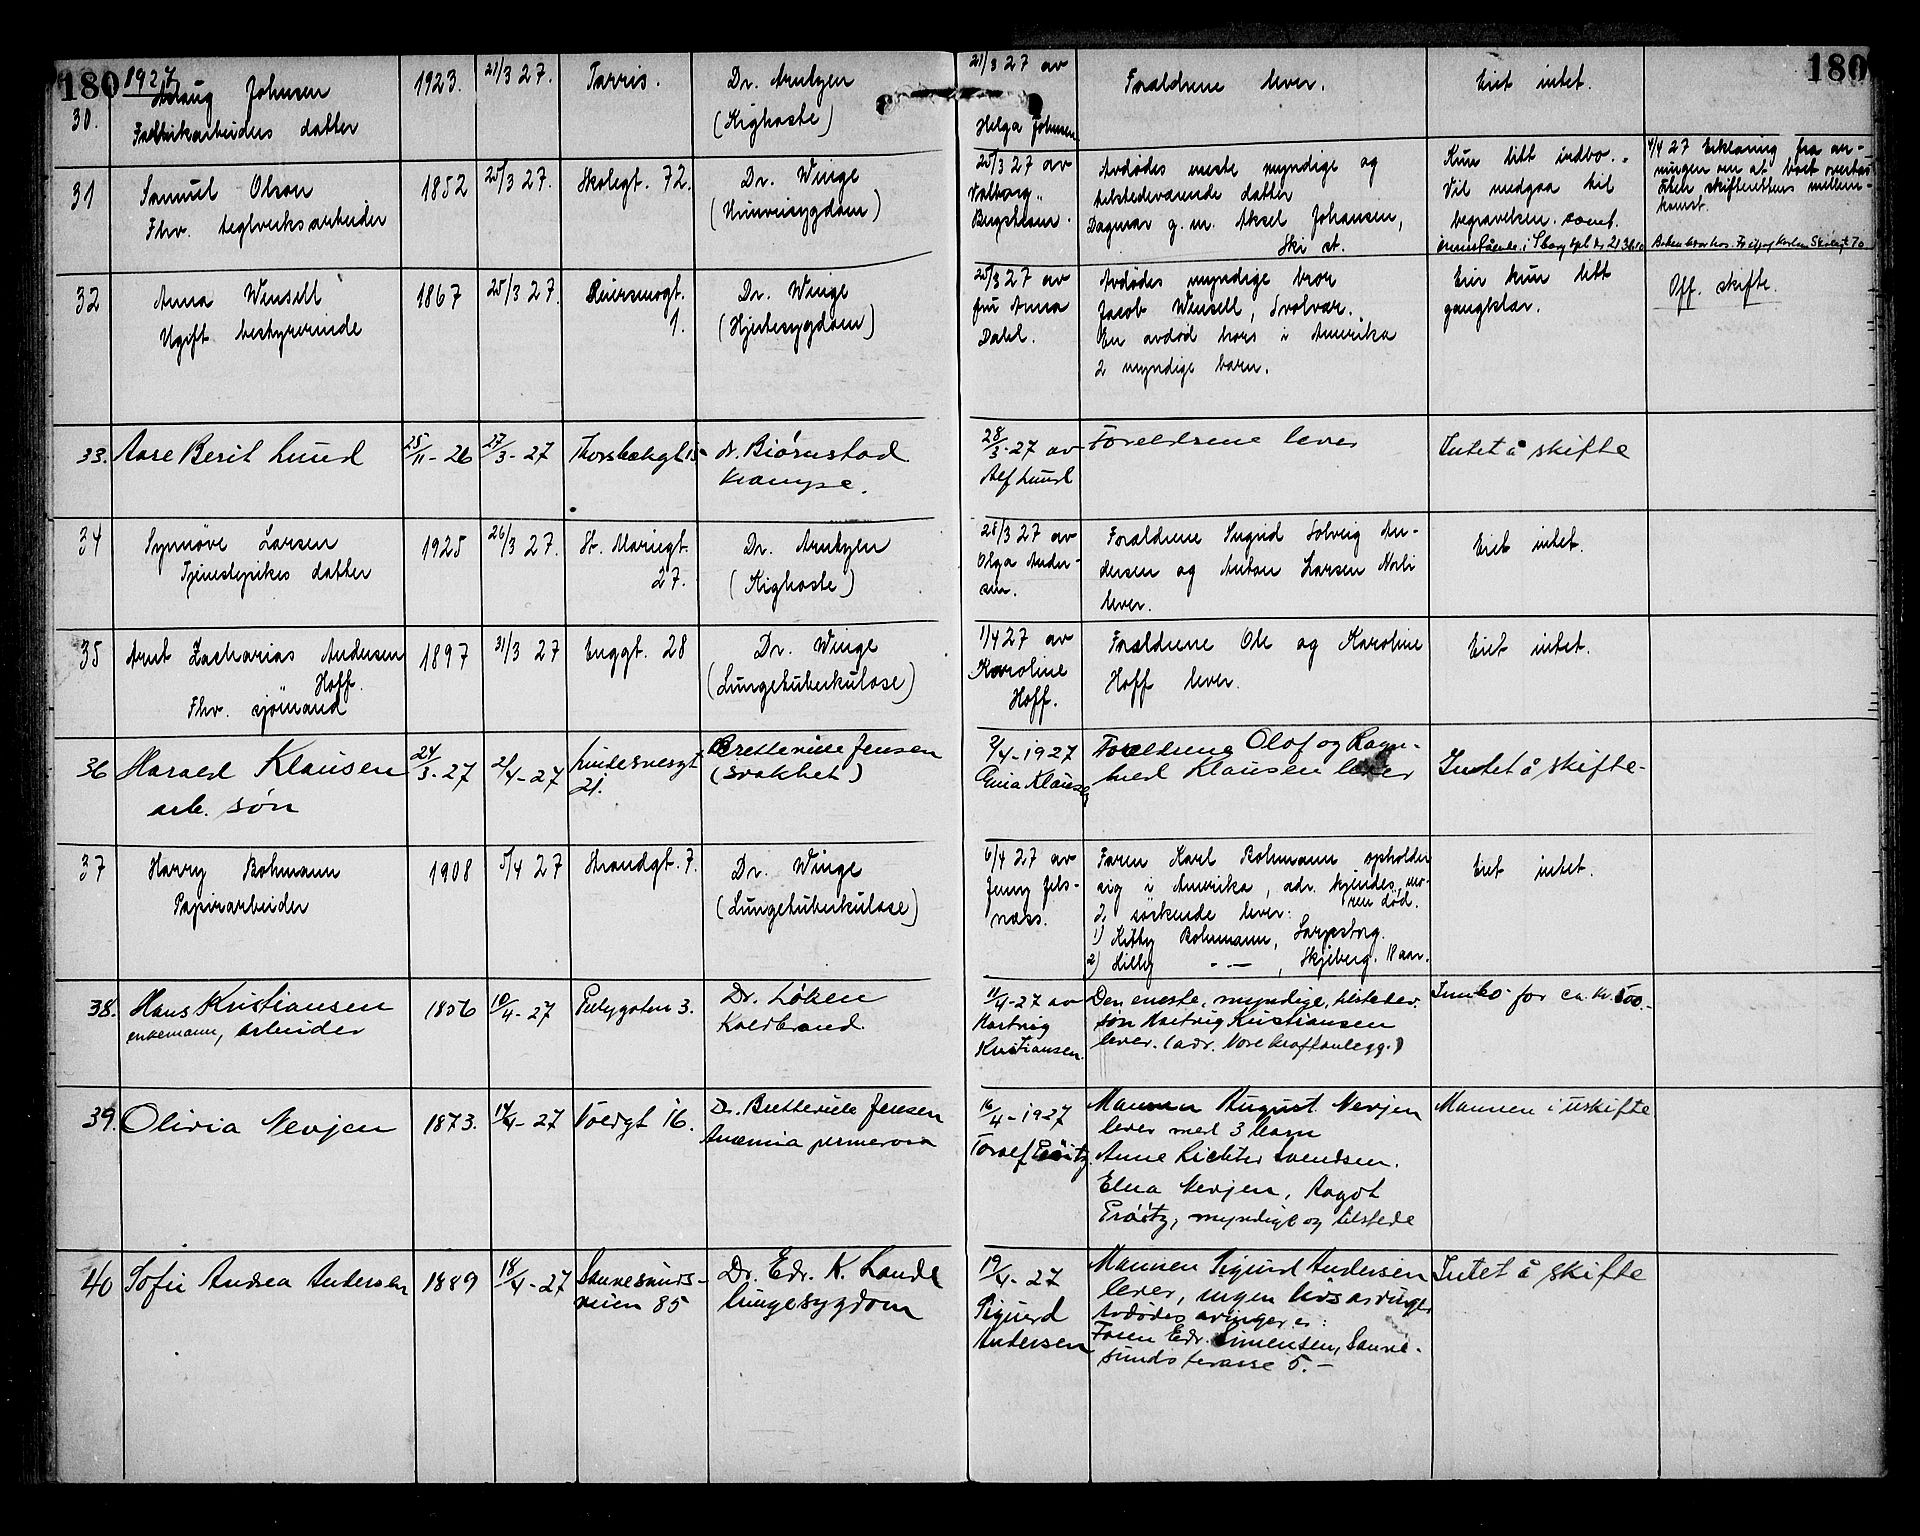 180 1927 180
30. Aslaug Johnsen 1923. 21/3 27. Tarris. Dr. Arntzen 21/3 27 av Forældrene lever. Eiet intet.
Fabrikarbeiders datter (Kighoste) Helga Johnsen
31 Samuel Olsen 1852 25/3 27. Skolegt. 72. Dr. Winge 25/3 27 av Avdødes eneste myndige og Kun litt indbo. 4/4 27 Erklæring fra
Fhv. teglverksarbeider (Urinveisygdom) Valborg tilstedeværende datter Vil medgaa til
Bergstrøm. Dagmar g. m. Aksel Johansen, begravelsen
Ski st.
32 Anna Wensell 1867 25/3 27. Dr. Winge 25/3 27 av Avdødes myndige bror Eier kun litt Off. skifte.
Ugift bestyrerinde 1. (Hjertesygdom) fru Anna Jacob Wensell, Svolvær. gangklær.
Dahl. En avdød brors i Amerika
2 myndige barn.
33. Aase Berit Lund 25/11-26 27/3-27 dr. Bjørnstad 28/3-27 av Foreldrene lever Intet å skifte
krampe. Alf Lund
34 Synnøve Larsen 1925 26/3 27. St. Mariegt. Dr. Arntzen 28/3 27 av Forældrene Ingrid Solveig An- Eiet intet.
Tjenestepikes datter 27. (Kighoste) Olga Ander- dersen og Anton Larsen Norli
sen. lever.
35 Arnt Zacharias Andersen 1897 31/3 27 Enggt. 28 Dr. Winge 1/4 27 av Forældrene Ole og Karoline Eiet intet.
Hoff. (Lungetuberkulose) Karoline Hoff lever.
Fhv. sjømand Hoff.
36 Harald Klausen 24/3-27 2/4-27 Lindesnesgt Bretteville Jensen 2/4-1927 Foreldrene Olof og Ragn- Intet å skifte-
arb. søn 21. (svakhet) Klausen hild Klausen lever
37 Harry Bohmann 1908 5/4 27 Strandgt. 7. Dr. Winge 6/4 27 av Faren Karl Bohmann opholder Eiet intet.
Papirarbeider (Lungetuberkulose) Jenny Jels- sig i Amerika, adr. kjendes, mo-
næss. ren død.
2 søskende lever:
1) Kitty Bohmann, Sarpsborg.
2) Hilly -"-, Skjeberg. 18 aar.
38. Hans Kristiansen 1856 10/4-27 3. Dr. Løken 11/4-27 av Den eneste, myndige, tilstedev. Innbo for ca. kr. 500.-
enkemann, arbeider Koldbrand Hartvig søn Hartvig Kristiansen
Kristiansen. lever. (adr. Nore kraftanlegg.)
39. Olivia Nevjen 1873. 14/4-27 Voldgt 16. Dr. Bretteville Jensen 16/4-1927 Mannen August Nevjen Mannen i uskifte
Anemia perniciosa lever med 3 barn
Anne Richter Svendsen.
Elna Nevjen, Aagot
myndige og tilstede
40 Sofie Andrea Andersen 1889 18/4-27 Sannesunds- Dr. Edv. K. Lande 19/4-27 Mannen Sigurd Andersen Intet å skifte
veien 85 lungesygdom Sigurd lever, ingen livsarvinger
Andersen Avdødes arvinger er:
Faren Edv. Simensen, Sanne-
sunds terasse 5.-